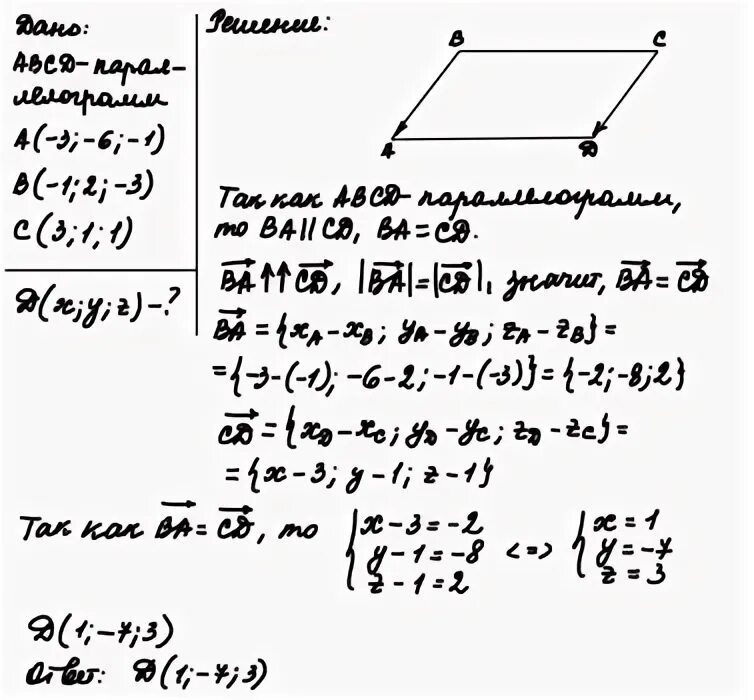 Дано:
ABCD-парал-
лелограмм
A(-3;-6;-1)
B(-1;2;-3)
C(3;1;1)
D(x;y;z)-?
Решение:
B C
A D
Так как ABCD-параллелограмм,
то BA||CD, BA=CD.
BA↑↑CD, |BA|=|CD|, значит, BA=CD
BA={xA-xB; yA-yB; zA-zB}=
={-3-(-1); -6-2; -1-(-3)}={-2;-8;2}
CD={xD-xC; yD-yC; zD-zC}=
={x-3; y-1; z-1}
Так как BA=CD, то
x-3=-2
y-1=-8
z-1=2
<=>
x=1
y=-7
z=3
D(1;-7;3)
Ответ: D(1;-7;3)